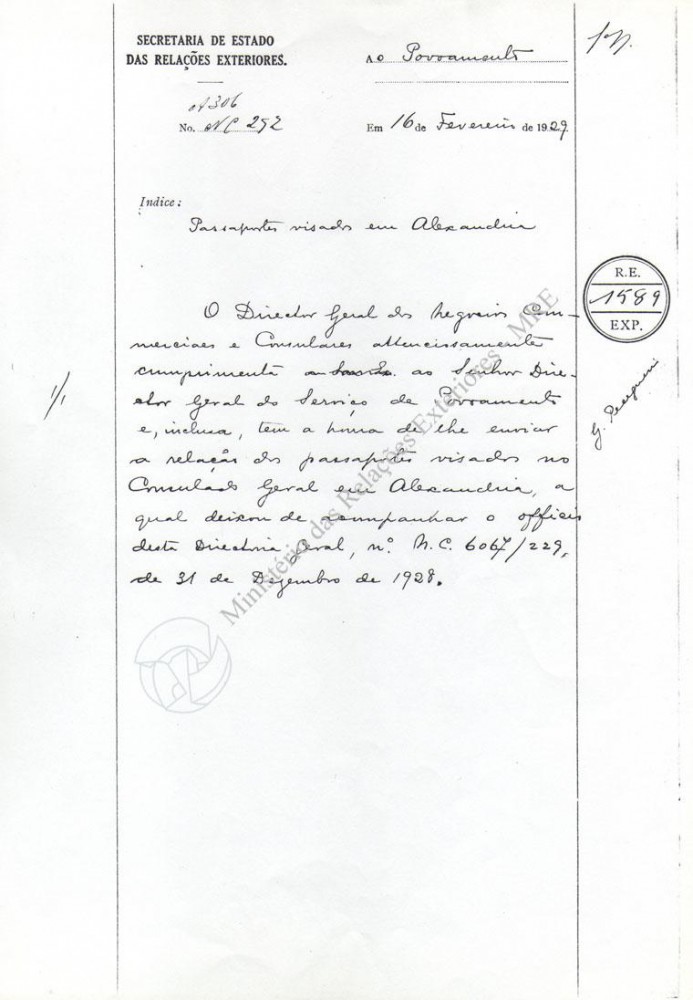 SECRETARIA DE ESTADO
DAS RELAÇÕES EXTERIORES.
AO Povoamento
A 306
No. NC 292
Em 16 de Fevereiro de 1929
Indice:
Passaportes visados em Alexandria
R.E.
1589
EXP.
O Director Geral dos Negocios Com-
merciaes e Consulares attenciosamente
cumprimenta ao Senhor Dire-
ctor Geral do Serviço de Povoamento
e, inclusa, tem a honra de lhe enviar
a relação dos passaportes visados no
Consulado Geral em Alexandria, a
qual deixou de acompanhar o officio
desta Directoria Geral, nº N.C. 6067/229,
de 31 de Dezembro de 1928.
1/1
Ministério das Relações Exteriores - MRE